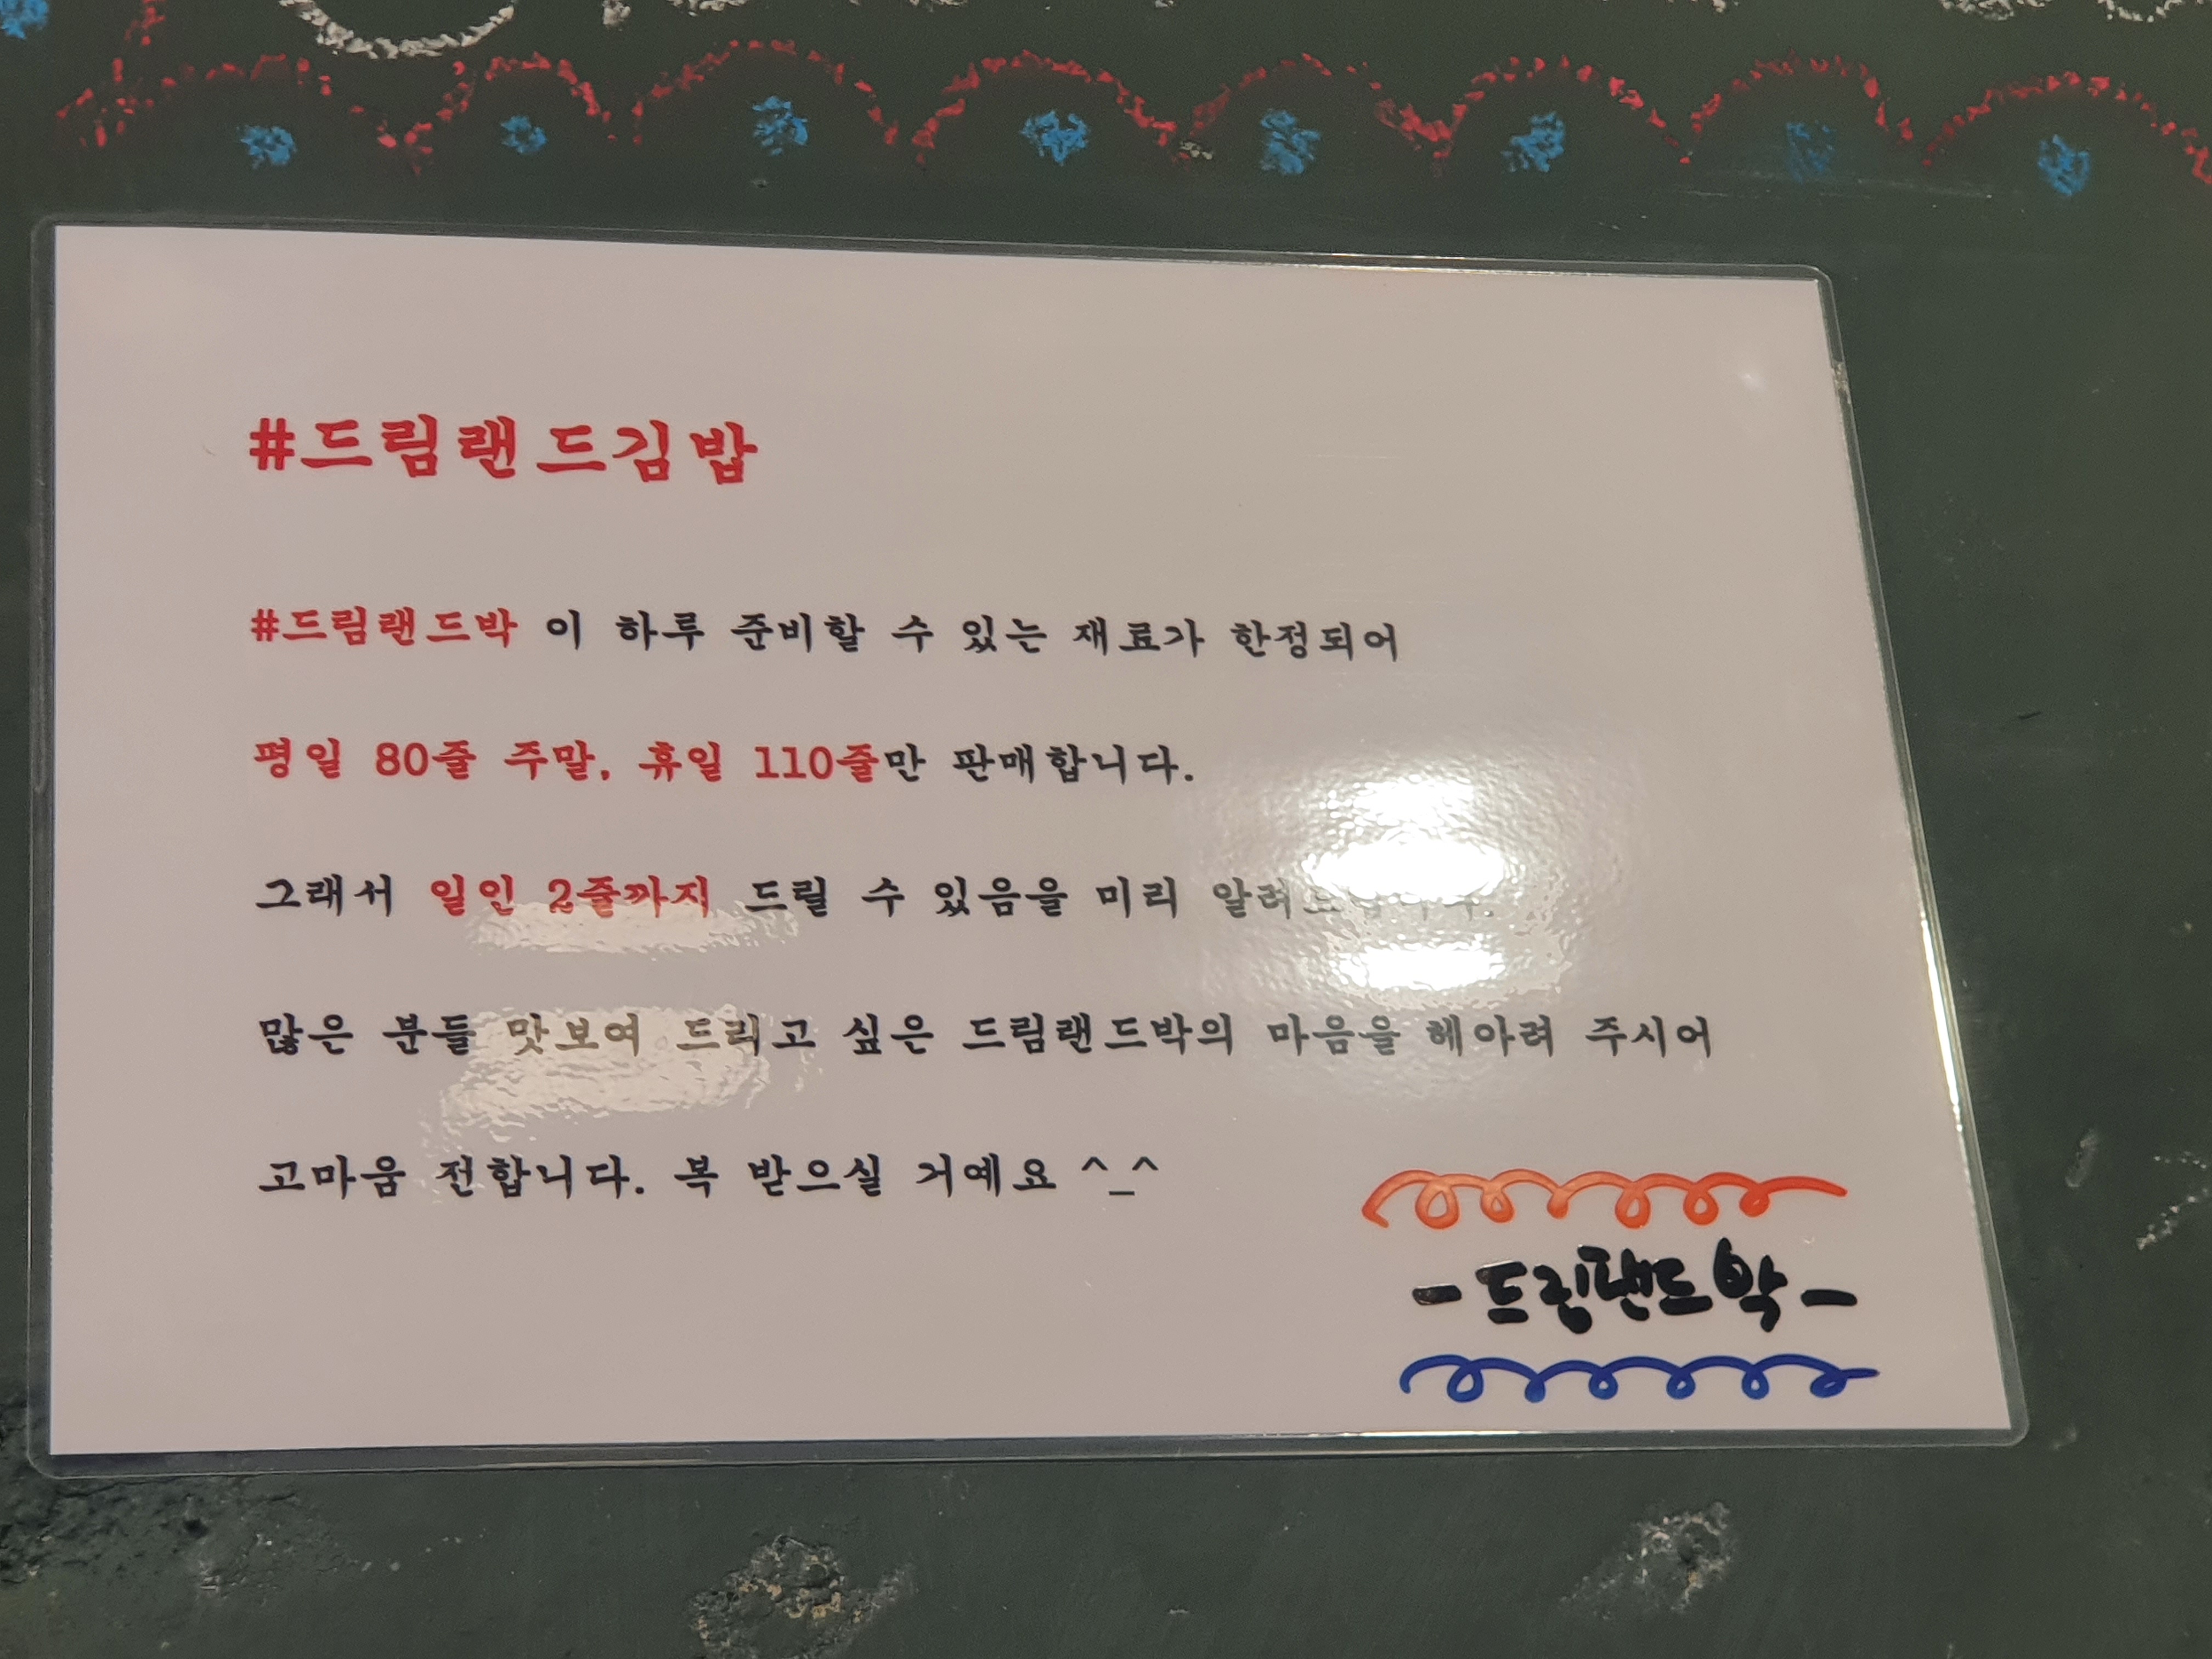 #드림랜드김밥
#드림랜드박 이 하루 준비할 수 있는 재료가 한정되어
평일 80줄 주말, 휴일 110줄만 판매합니다.
그래서 일인 2줄까지 드릴 수 있음을 미리 알려드립니다.
많은 분들 맛보여 드리고 싶은 드림랜드박의 마음을 헤아려 주시어
고마움 전합니다. 복 받으실 거예요 ^_^
-드림랜드박-